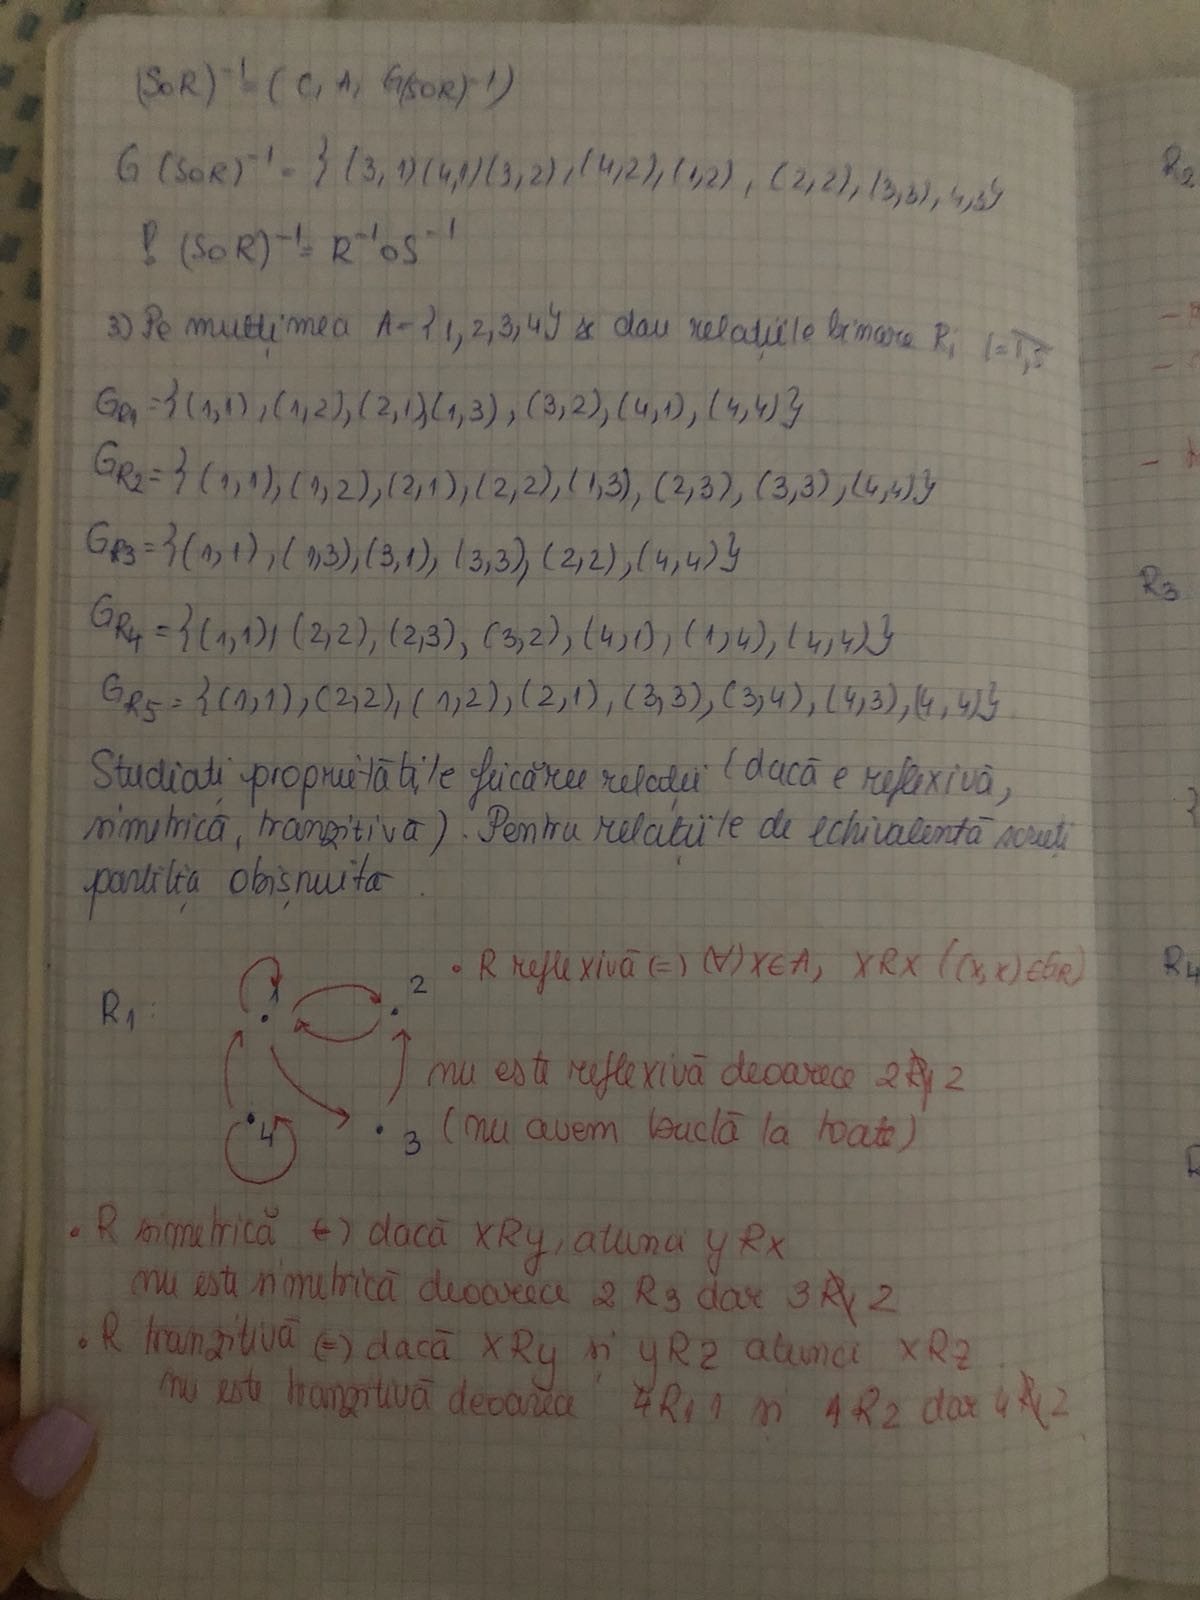 (SoR)⁻¹ = (C, A, G(SOR)⁻¹)
G (SoR)⁻¹ = } (3,1)(4,1)(3,2), (4,2), (1,2), (2,2), (3,3), 4,3}
! (SoR)⁻¹ = R⁻¹oS⁻¹
3) Pe mulțimea A = {1,2,3,4} se dau relațiile binare Ri i=1,5
GR1 = {(1,1), (1,2), (2,1),(1,3), (3,2), (4,1), (4,4)}
GR2 = {(1,1), (1,2), (2,1), (2,2), (1,3), (2,3), (3,3), (4,4)}
GR3 = {(1,1), (1,3), (3,1), (3,3), (2,2), (4,4)}
GR4 = {(1,1), (2,2), (2,3), (3,2), (4,1), (1,4), (4,4)}
GR5 = {(1,1), (2,2), (1,2), (2,1), (3,3), (3,4), (4,3), (4,4)}
Studiați proprietățile fiecărei relații (dacă e reflexivă,
simetrică, tranzitivă). Pentru relațiile de echivalentă scrieți
partiția obișnuită
R1: 1 2
• R reflexivă (=) (∀) x∈A, xRx ((x,x)∈GR)
nu este reflexivă deoarece 2R̸1 2
4 3 (nu avem buclă la toate)
• R simetrică (=) dacă xRy, atunci yRx
nu este simetrică deoarece 2 R3 dar 3 R̸1 2
• R tranzitivă (=) dacă xRy și yRz atunci xRz
nu este tranzitivă deoarece 4R1 1 și 1R2 dar 4R̸1 2
R2
R3
R4